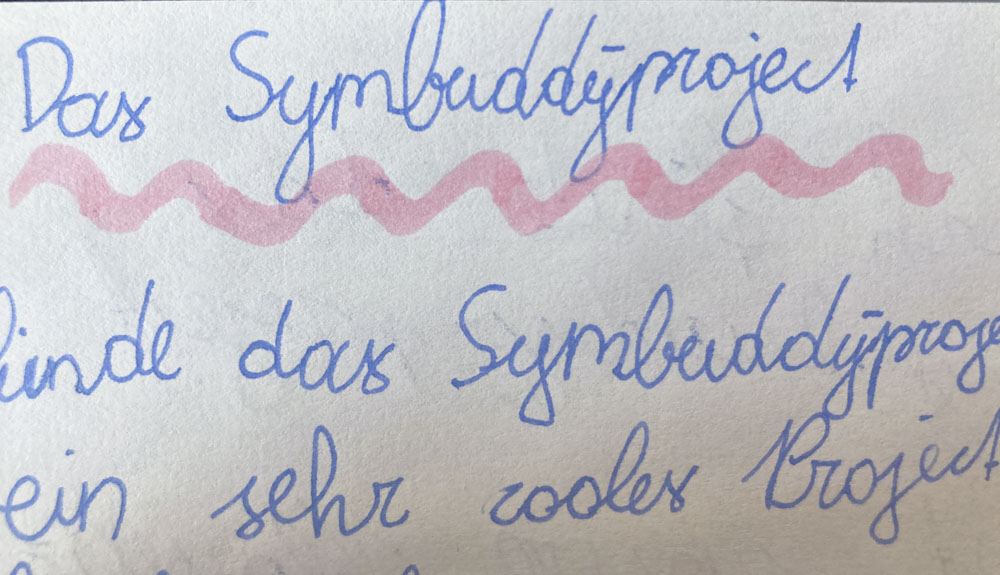 Das Symbuddyproject
finde das Symbuddyproje
ein sehr cooles Project